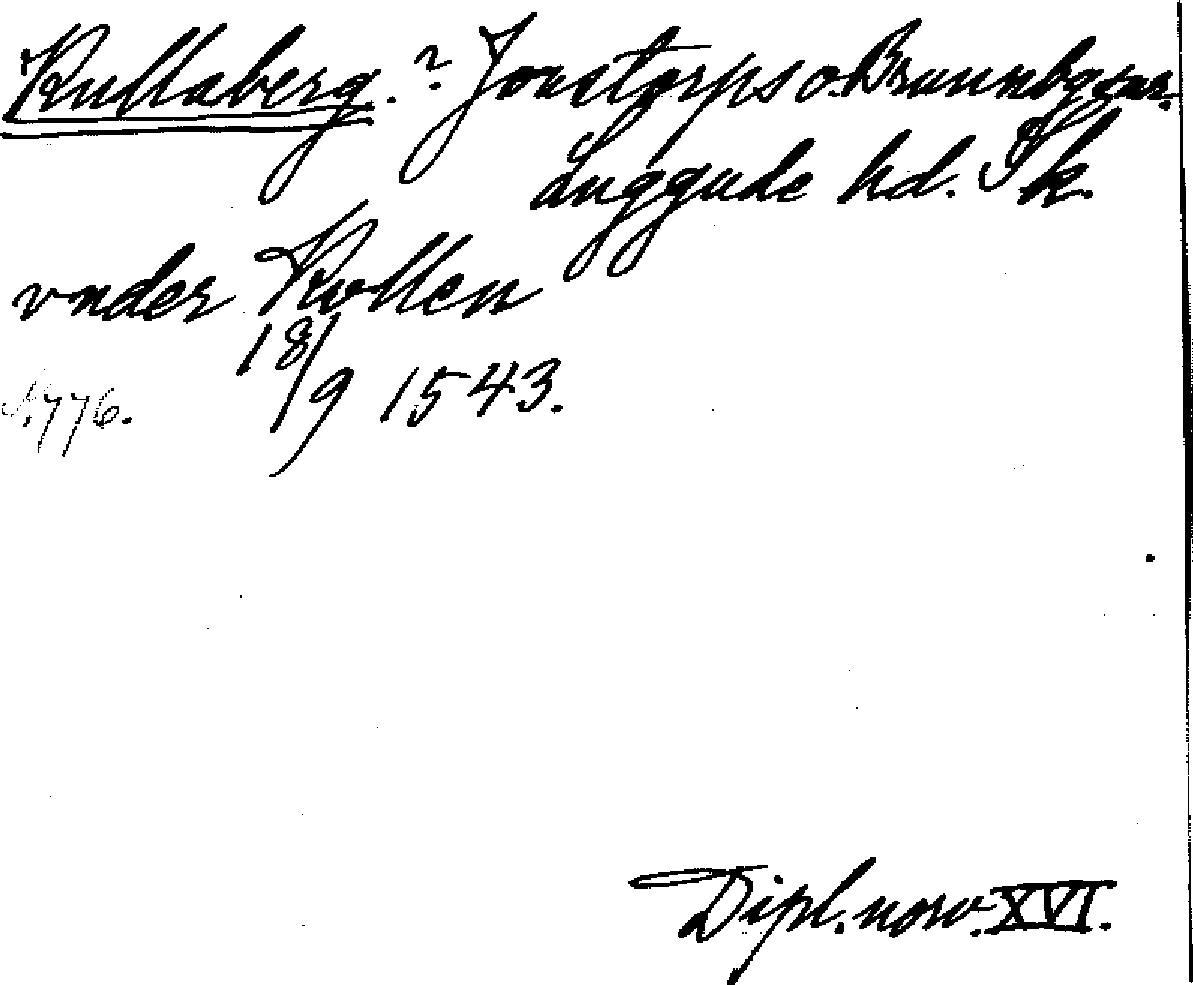 Kullaberg.? Jonstorps o. Brunnbysnr.
Luggude hd. Sk.
vnder Kollen
18/9 1543.
s. 776.
Dipl. norv. XVI.